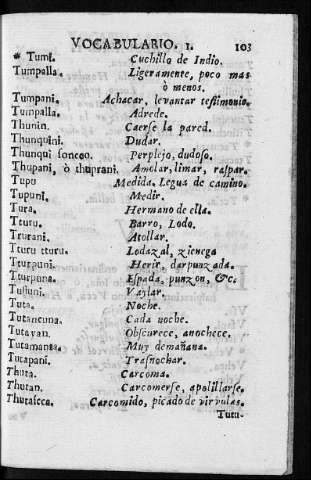 VOCABULARIO. 1. 103
* Tumi. Cuchillo de Indio.
Tumpalla. Ligeramente, poco mas
ò menos.
Tumpani. Achacar, levantar testimonio.
Tumpalla. Adrede.
Thunin. Caerse la pared.
Thunquini. Dudar.
Thunqui soncco. Perplejo, dudoso.
Thupani, ò thuprani. Amolar, limar, raspar.
Tupu Medida, Legua de camino.
Tupuni. Medir.
Tura. Hermano de ella.
Tturu. Barro, Lodo.
Tturani. Atollar.
Tturu tturu. Lodazal, zienega
Tturpuni. Herir, dar punzada.
Tturpuna. Espada, punzon, &c.
Tussuni. Vaylar.
Tuta. Noche.
Tutancuna. Cada noche.
Tutayan. Obscurece, anochece.
Tutamanta. Muy demañana.
Tutapani. Trasnochar.
Thuta. Carcoma.
Thutan. Carcomerse, apolillarse.
Thutascca. Carcomido, picado de virvulas.
Tutu-